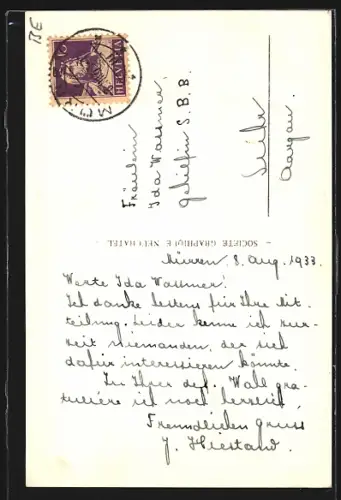 BE
10
HELVETIA
MÜRREN
Fräulein
Ida Wassmer
Gehilfin S.B.B.
Aargau.
- SOCIÉTÉ GRAPHIQUE NEUCHATEL -
Mürren, 8. Aug. 1933.
Werte Ida Wassmer!
Ich danke bestens für Ihre Mit-
teilung. Leider kenne ich zur-
zeit niemanden, der sich
dafür interessieren könnte.
Zu Ihrer def. Wahl gra-
tuliere ich noch herzlich.
Freundlichen Gruss
J. Hiestand.